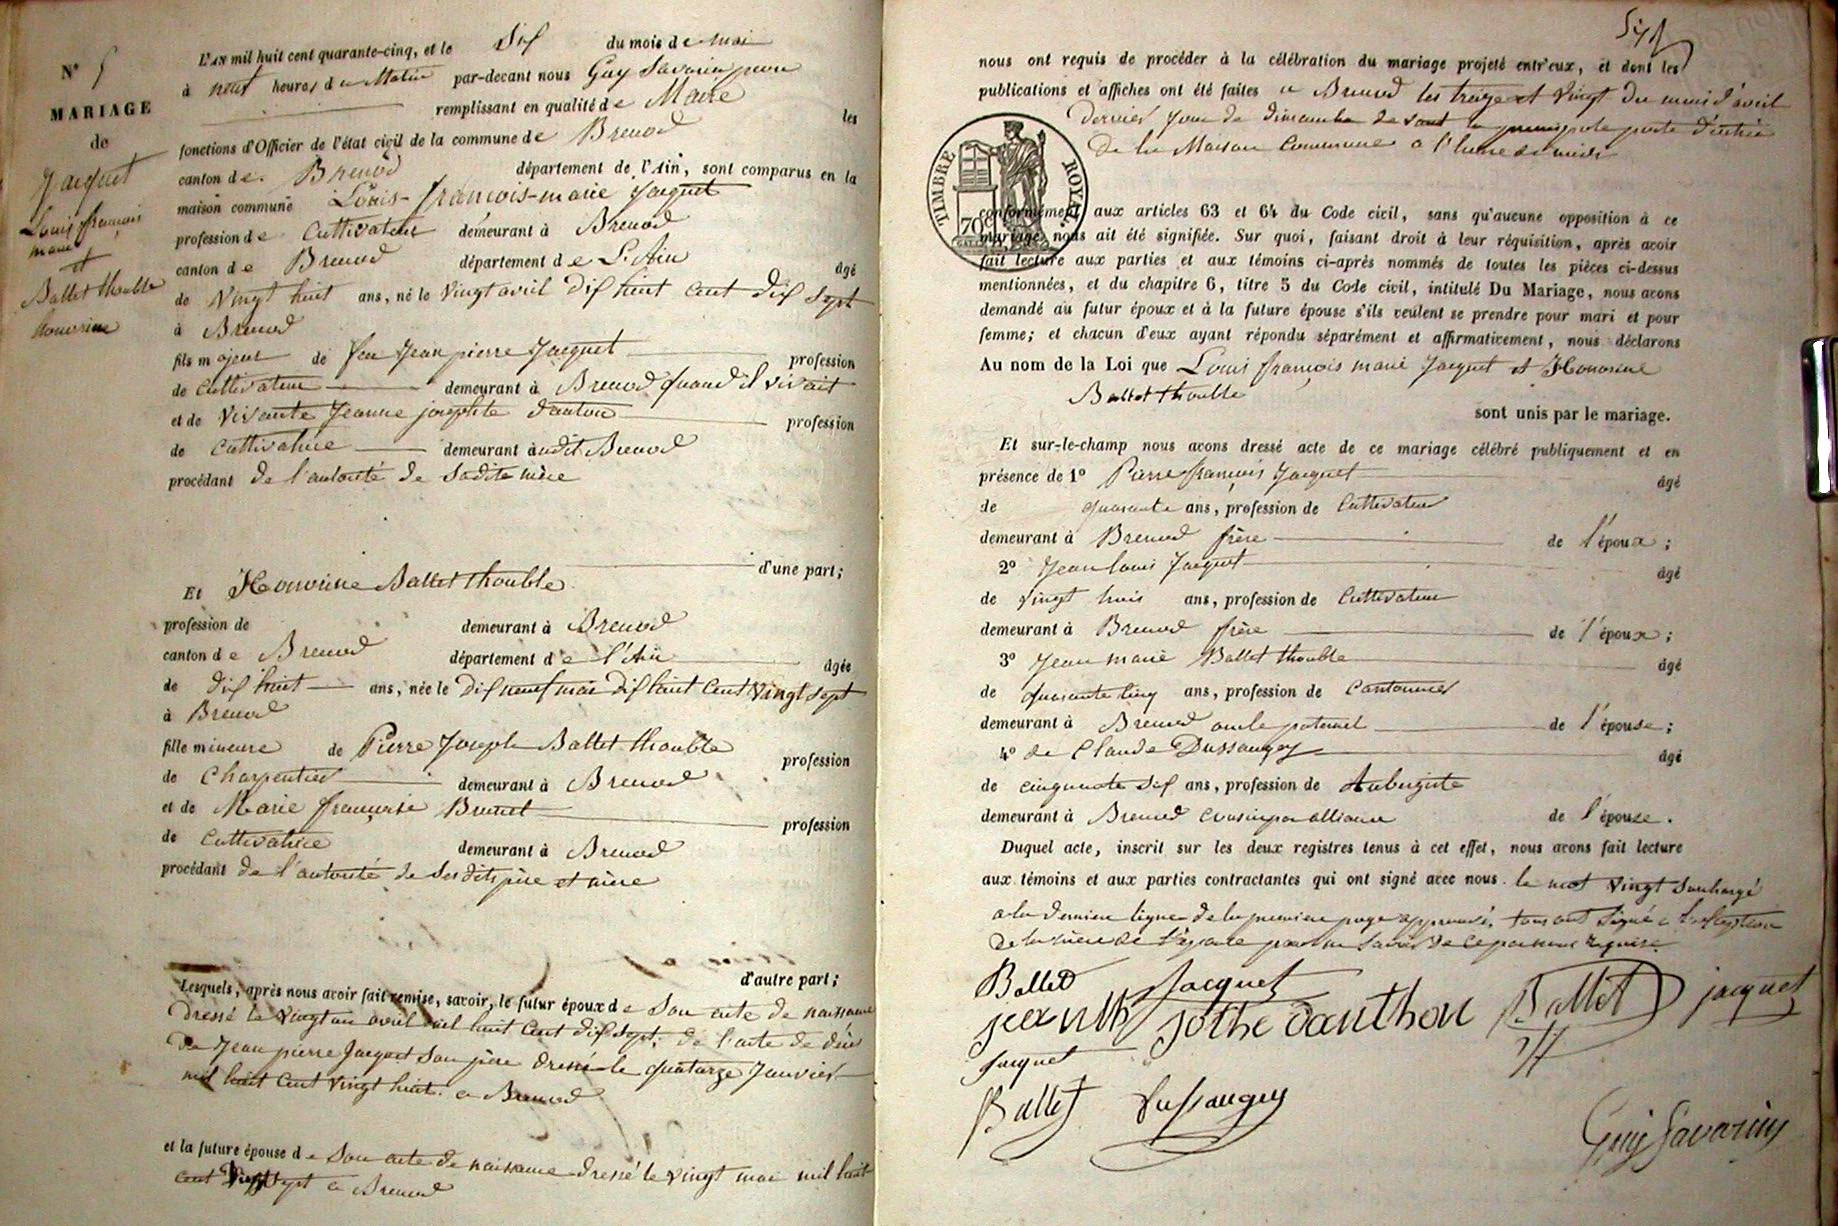 N° 5
MARIAGE
de
Jacquet
Louis françois
marie
et
Ballet thouble
honorine
L'AN mil huit cent quarante-cinq, et le Six du mois de mai
à neuf heures du Matin par-devant nous Guy Savarin
remplissant en qualité de Maire les
fonctions d'Officier de l'état civil de la commune de Brenod
canton de Brenod département de l'Ain, sont comparus en la
maison commune Louis-françois-marie Jacquet
profession de Cultivateur demeurant à Brenod
canton de Brenod département de L'Ain âgé
de Vingt huit ans, né le Vingt avril dix huit cent dix sept
à Brenod
fils majeur de feu Jean pierre Jacquet profession
de Cultivateur demeurant à Brenod quand il vivait
et de Vivante Jeanne josephte dauton profession
de Cultivatrice demeurant audit Brenod
procédant de l'autorité de Sadite mère
d'une part;
Et Honorine Ballet thouble
profession de demeurant à Brenod
canton de Brenod département de l'Ain âgée
de dix huit ans, née le dix neuf mai dix huit cent vingt sept
à Brenod
fille mineure de Pierre Joseph Ballet thouble profession
de Charpentier demeurant à Brenod
et de Marie françoise Brunet profession
de Cultivatrice demeurant à Brenod
procédant de l'autorité de Ses dits père et mère
d'autre part;
Lesquels, après nous avoir fait remise, savoir, le futur époux de Son acte de naissance
dressé le vingt un avril mil huit cent dix sept, de l'acte de décès
de Jean pierre Jacquet Son père dressé le quatorze Janvier
mil huit cent vingt huit a Brenod
et la future épouse de Son acte de naissance dressé le vingt mai mil huit
cent vingt sept a Brenod
nous ont requis de procéder à la célébration du mariage projeté entr'eux, et dont les
publications et affiches ont été faites a Brenod les treize et vingt du mois d'avril
dernier jour de dimanche devant la principale porte d'entrée
de la Maison Commune a l'heure de midi
TIMBRE ROYAL
70 c
conformément aux articles 63 et 64 du Code civil, sans qu'aucune opposition à ce
mariage nous ait été signifiée. Sur quoi, faisant droit à leur réquisition, après avoir
fait lecture aux parties et aux témoins ci-après nommés de toutes les pièces ci-dessus
mentionnées, et du chapitre 6, titre 5 du Code civil, intitulé Du Mariage, nous avons
demandé au futur époux et à la future épouse s'ils veulent se prendre pour mari et pour
femme; et chacun d'eux ayant répondu séparément et affirmativement, nous déclarons
Au nom de la Loi que Louis françois marie Jacquet et Honorine
Ballet thouble
sont unis par le mariage.
Et sur-le-champ nous avons dressé acte de ce mariage célébré publiquement et en
présence de 1° Pierre françois Jacquet âgé
de quarante ans, profession de Cultivateur
demeurant à Brenod frère de l'époux;
2° Jean louis Jacquet âgé
de vingt trois ans, profession de Cultivateur
demeurant à Brenod frère de l'époux;
3° Jean marie Ballet thouble âgé
de quarante cinq ans, profession de Cantonnier
demeurant à Brenod oncle paternel de l'épouse;
4° de Claude Dussaugey âgé
de cinquante six ans, profession de Aubergiste
demeurant à Brenod cousin par alliance de l'épouse.
Duquel acte, inscrit sur les deux registres tenus à cet effet, nous avons fait lecture
aux témoins et aux parties contractantes qui ont signé avec nous le mot Vingt Surchargé
a la derniere ligne de la premiere page approuvé, tous ont Signé a l'exception
de la mère de l'épouse pour ne Savoir de ce par nous requise
Ballet Jacquet Ballet jacquet
jeannth jothe danthon
Jacquet
Ballet Dussaugey
Guy Savarin